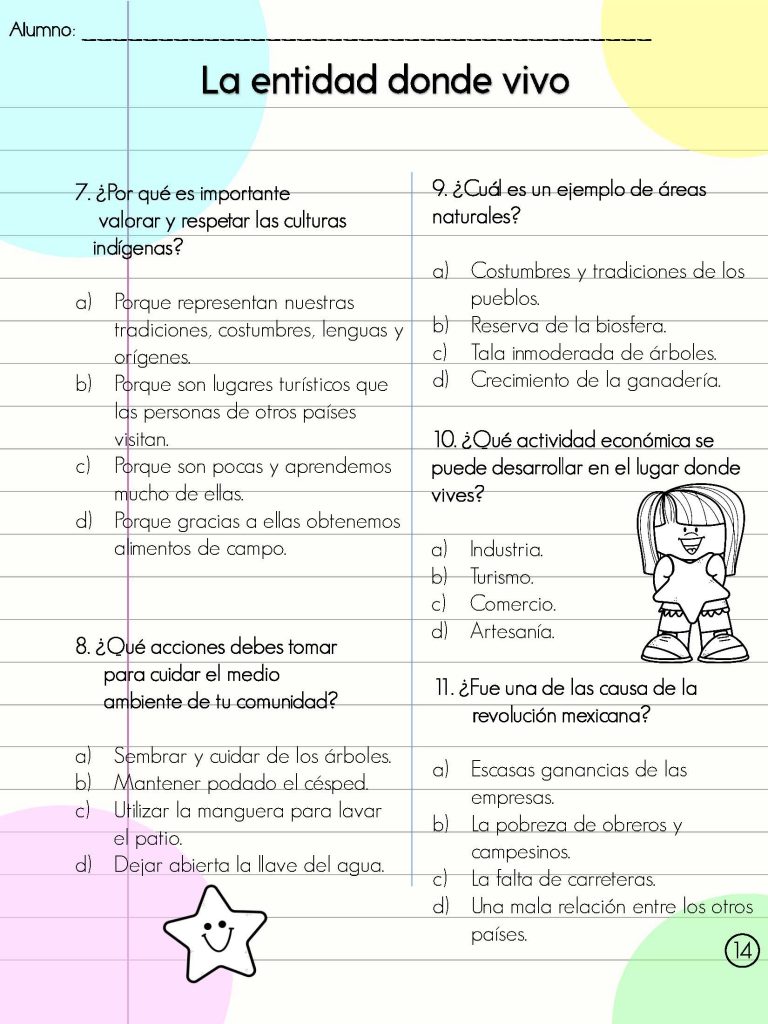 Alumno: ______________________________________
La entidad donde vivo
7. ¿Por qué es importante
valorar y respetar las culturas
indígenas?
a) Porque representan nuestras
tradiciones, costumbres, lenguas y
orígenes.
b) Porque son lugares turísticos que
las personas de otros países
visitan.
c) Porque son pocas y aprendemos
mucho de ellas.
d) Porque gracias a ellas obtenemos
alimentos de campo.
8. ¿Qué acciones debes tomar
para cuidar el medio
ambiente de tu comunidad?
a) Sembrar y cuidar de los árboles.
b) Mantener podado el césped.
c) Utilizar la manguera para lavar
el patio.
d) Dejar abierta la llave del agua.
9. ¿Cuál es un ejemplo de áreas
naturales?
a) Costumbres y tradiciones de los
pueblos.
b) Reserva de la biosfera.
c) Tala inmoderada de árboles.
d) Crecimiento de la ganadería.
10. ¿Qué actividad económica se
puede desarrollar en el lugar donde
vives?
a) Industria.
b) Turismo.
c) Comercio.
d) Artesanía.
11. ¿Fue una de las causa de la
revolución mexicana?
a) Escasas ganancias de las
empresas.
b) La pobreza de obreros y
campesinos.
c) La falta de carreteras.
d) Una mala relación entre los otros
países.
14